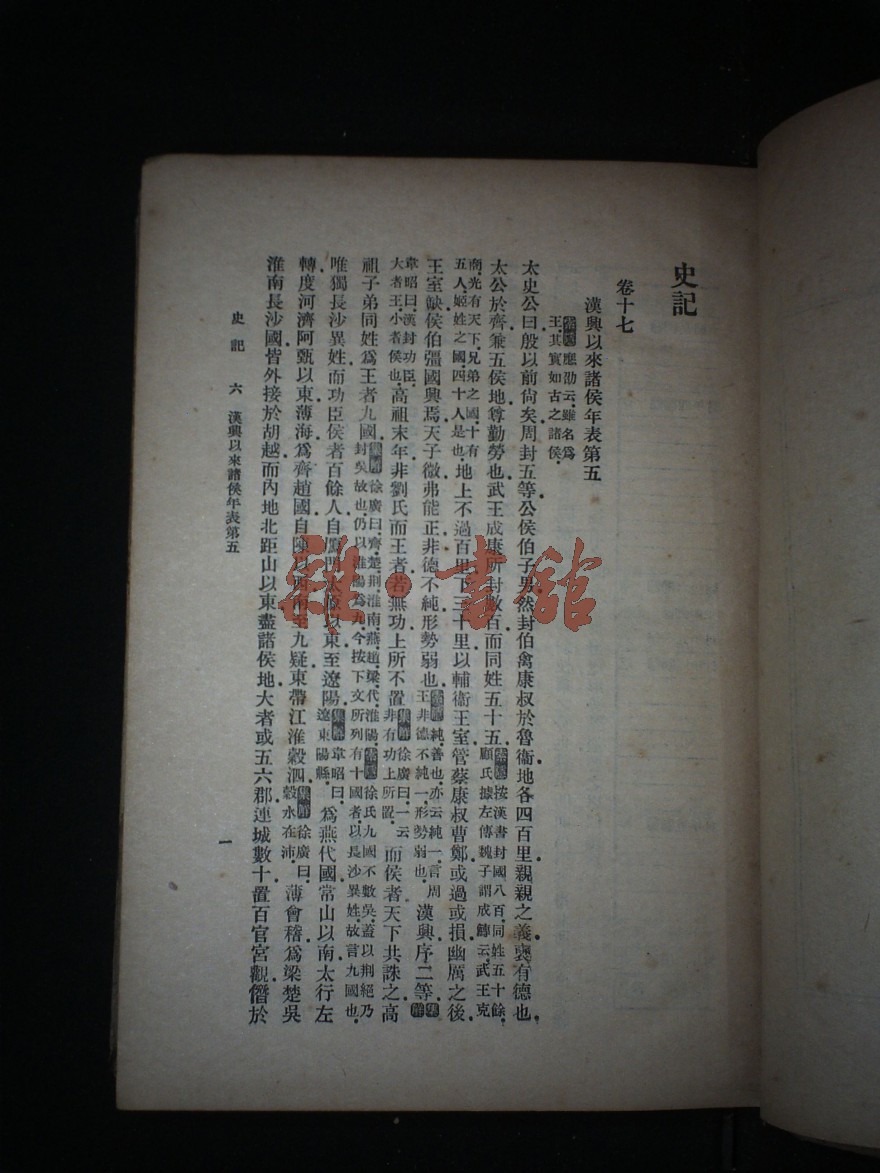 史記
卷十七
漢興以來諸侯年表第五
索隱應劭云雖名爲
王其實如古之諸侯
太史公曰殷以前尙矣周封五等公侯伯子男然封伯禽康叔於魯衞地各四百里親親之義襃有德也
太公於齊兼五侯地尊勤勞也武王成康所封數百而同姓五十五索隱按漢書封國八百同姓五十餘顧氏據左傳魏子謂成鱄云武王克
商光有天下兄弟之國十有五人姬姓之國四十人是也地上不過百里下三十里以輔衞王室管蔡康叔曹鄭或過或損幽厲之後
王室缺侯伯彊國興焉天子微弗能正非德不純形勢弱也索隱純善也亦云純一言周王非德不純一形勢弱也漢興序二等集解
韋昭曰漢封功臣大者王小者侯也高祖末年非劉氏而王者若無功上所不置集解徐廣曰一云非有功上所置而侯者天下共誅之高
祖子弟同姓爲王者九國集解徐廣曰齊楚荆淮南燕趙梁代淮陽索隱徐氏九國不數吳蓋以荆絕乃封吳故也仍以淮陽爲九今按下文所列有十國者以長沙異姓故言九國也
唯獨長沙異姓而功臣侯者百餘人自鴈門太原以東至遼陽集解韋昭曰遼東遼陽縣爲燕代國常山以南太行左
轉度河濟阿甄以東薄海爲齊趙國自陳以西南至九疑東帶江淮穀泗集解徐廣曰穀水在沛薄會稽爲梁楚吳
淮南長沙國皆外接於胡越而內地北距山以東盡諸侯地大者或五六郡連城數十置百官宮觀僭於
史記 六 漢興以來諸侯年表第五
一
雜·書館